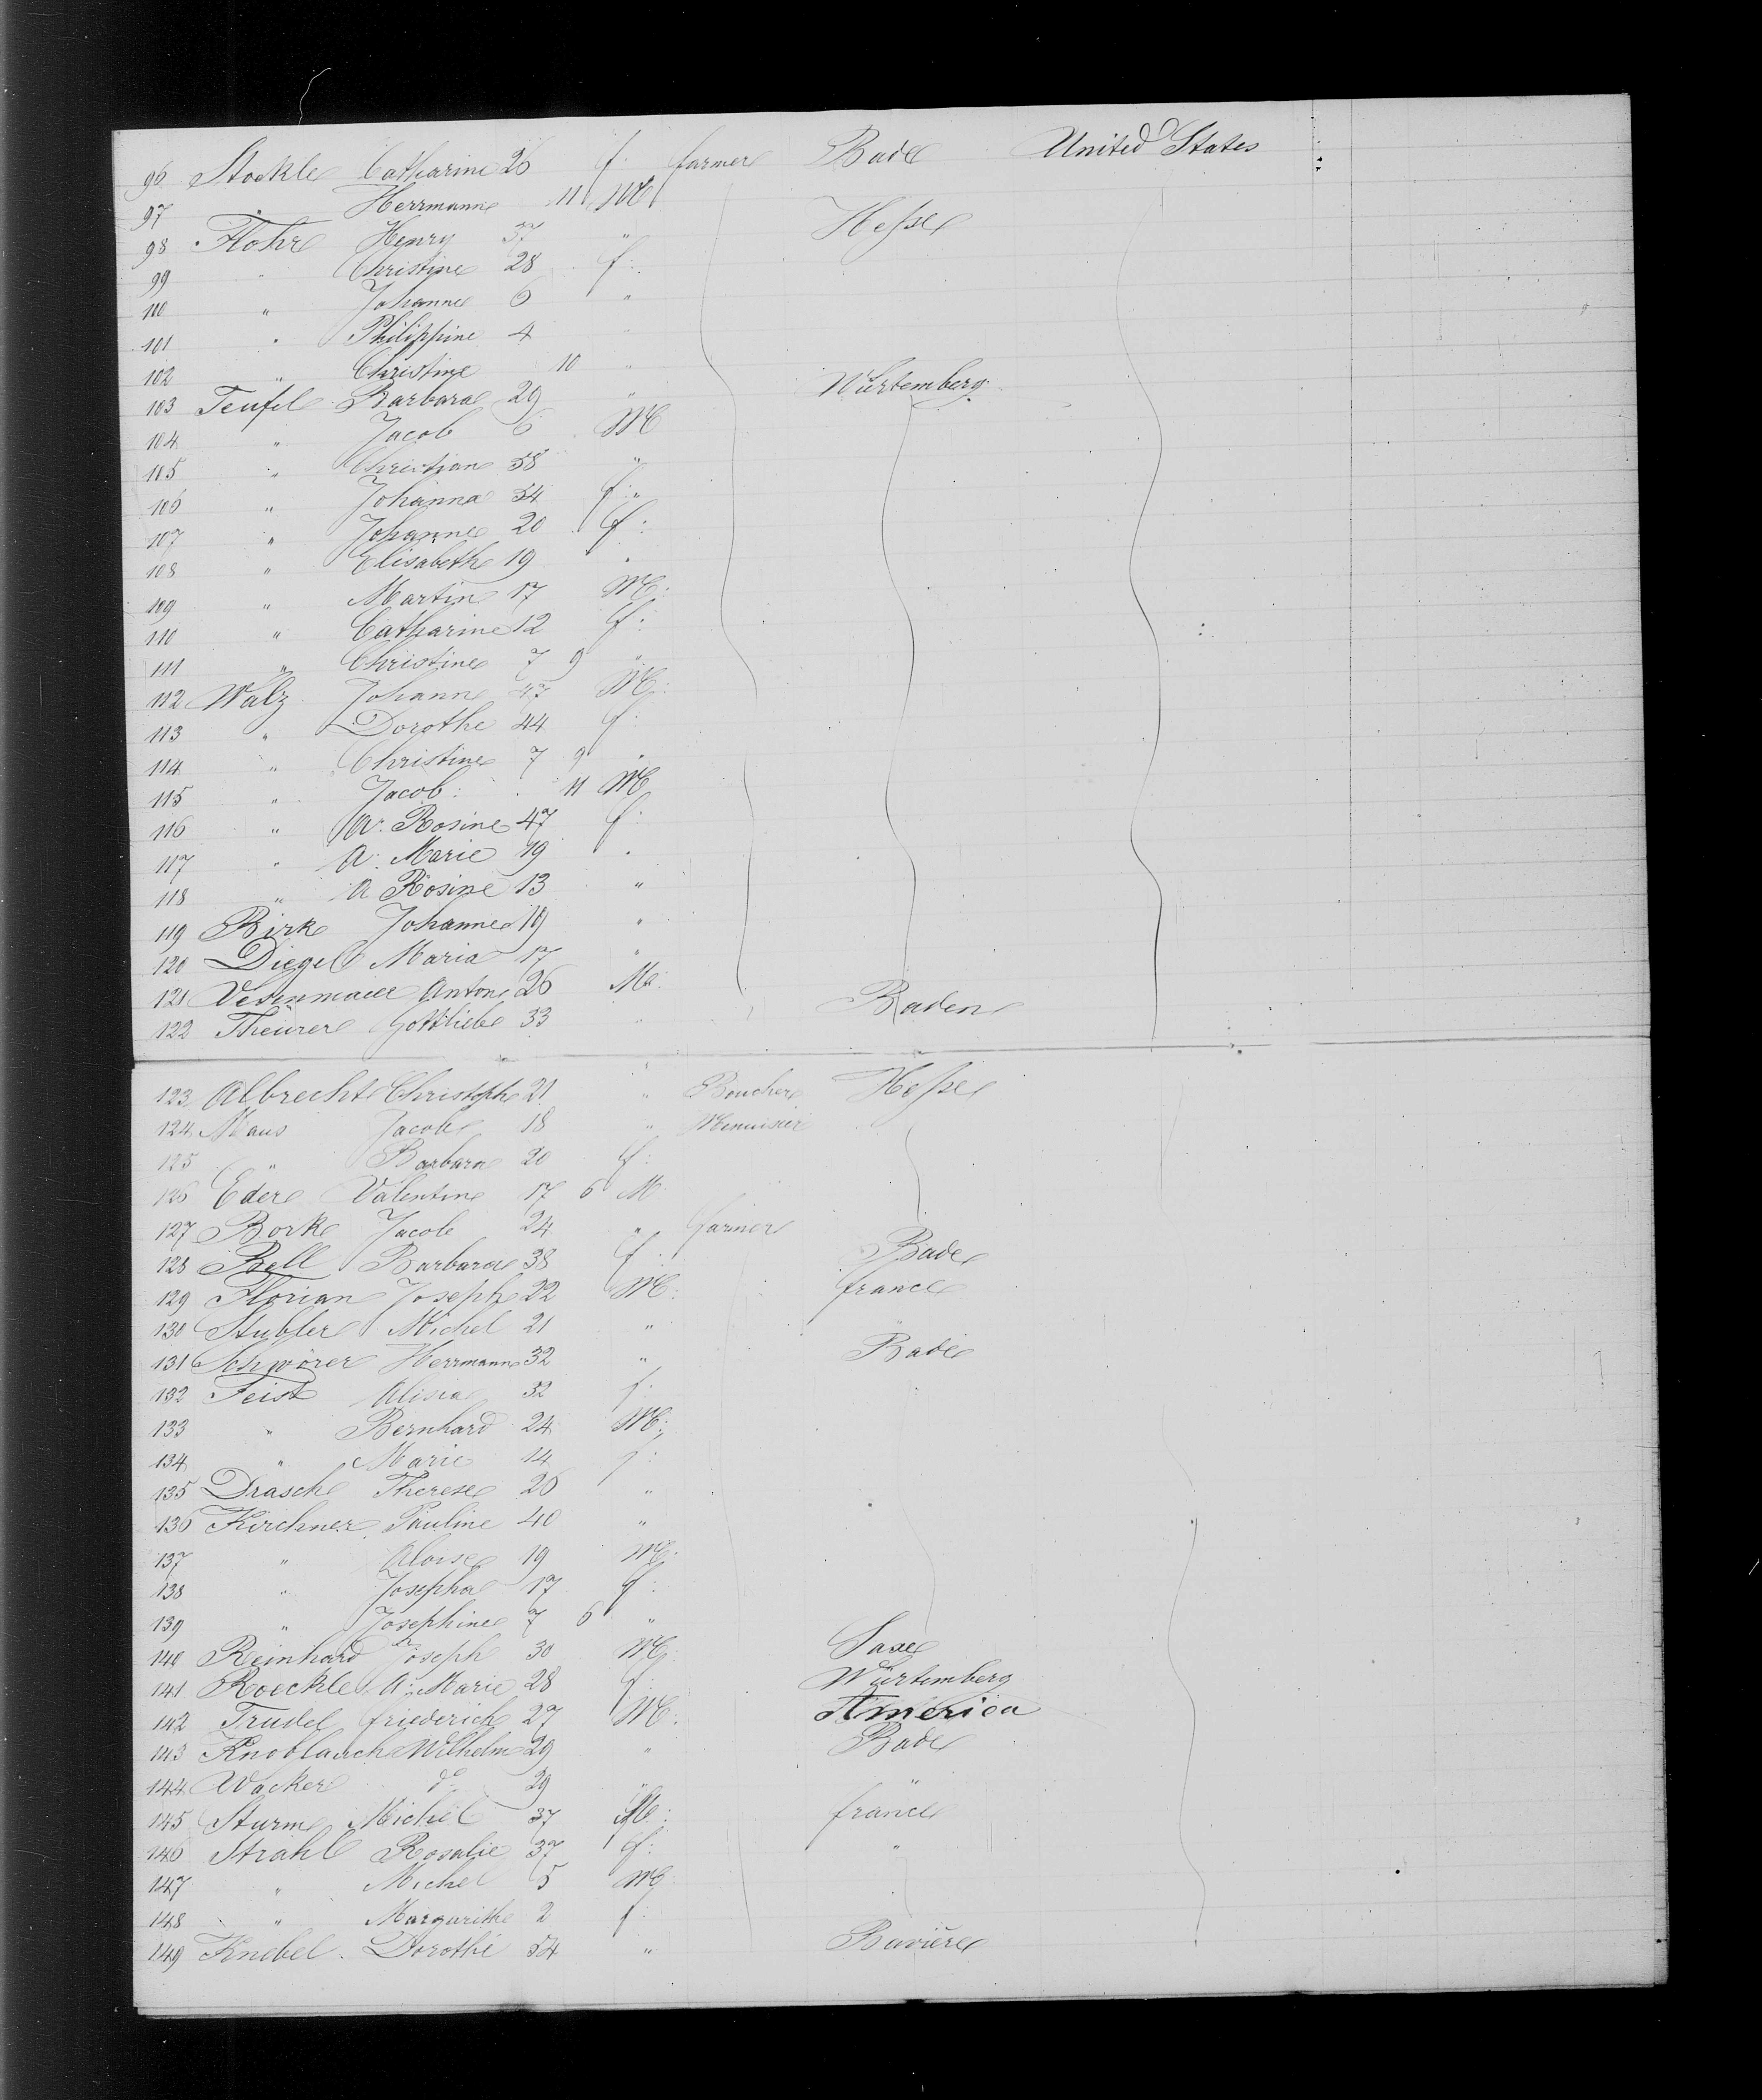 96 Stockle Catharine 26 f. farmer Bade United States
97 Herrmann 11 M
98 Flohr Henry 37 " Hesse
99 " Christine 28 f.
100 " Johanne 6 "
101 " Philippine 4 "
102 " Christine 10 "
103 Teufel Barbara 29 " Würtemberg
104 " Jacob 6 M
105 " Christian 58 "
106 " Johanna 54 f. "
107 " Johanne 20 f:
108 " Elisabeth 19 "
109 " Martin 17 M:
110 " Catharine 12 f:
111 " Christine 7 9 "
112 Walz Johann 47 M:
113 " Dorothe 44 f:
114 " Christine 7 9 "
115 " Jacob 11 M
116 " A. Rosine 47 f:
117 " A. Marie 19 "
118 " A Rosine 13 "
119 Birk Johanne 19 "
120 Diegel Maria 17 "
121 Anton 26 M.
122 Theurer Gottlieb 33 " Baden
123 Albrecht Christoph 21 " Boucher Hesse
124 Maus Jacob 18 " Menuisier
125 " Barbara 20 f:
126 Eder Valentin 17 6 M
127 Bork Jacob 24 " farmer
128 Bell Barbara 38 f. Bade
129 Florian Joseph 22 M: france
130 Stubler Michel 21 " "
131 Schwörer Herrmann 32 " Bade
132 Feist Alisia 32 f.
133 " Bernhard 24 M:
134 " Marie 14 f:
135 Drasch Therese 26 "
136 Kirchner Pauline 40 "
137 " Aloise 19 M:
138 " Josepha 17 f:
139 " Josephine 7 6 "
140 Reinhard Joseph 30 M: Saxe
141 Roeckle A. Marie 28 f. Würtemberg
142 Trudel friederich 27 M: America
143 Knoblauch Wilhelm 29 " Bade
144 Wacker do 29 " "
145 Sturm Michel 37 M: france
146 Strahl Rosalie 37 f: "
147 " Michel 5 M
148 " Margarithe 2 f:
149 Knebel Dorothé 54 " Bavière